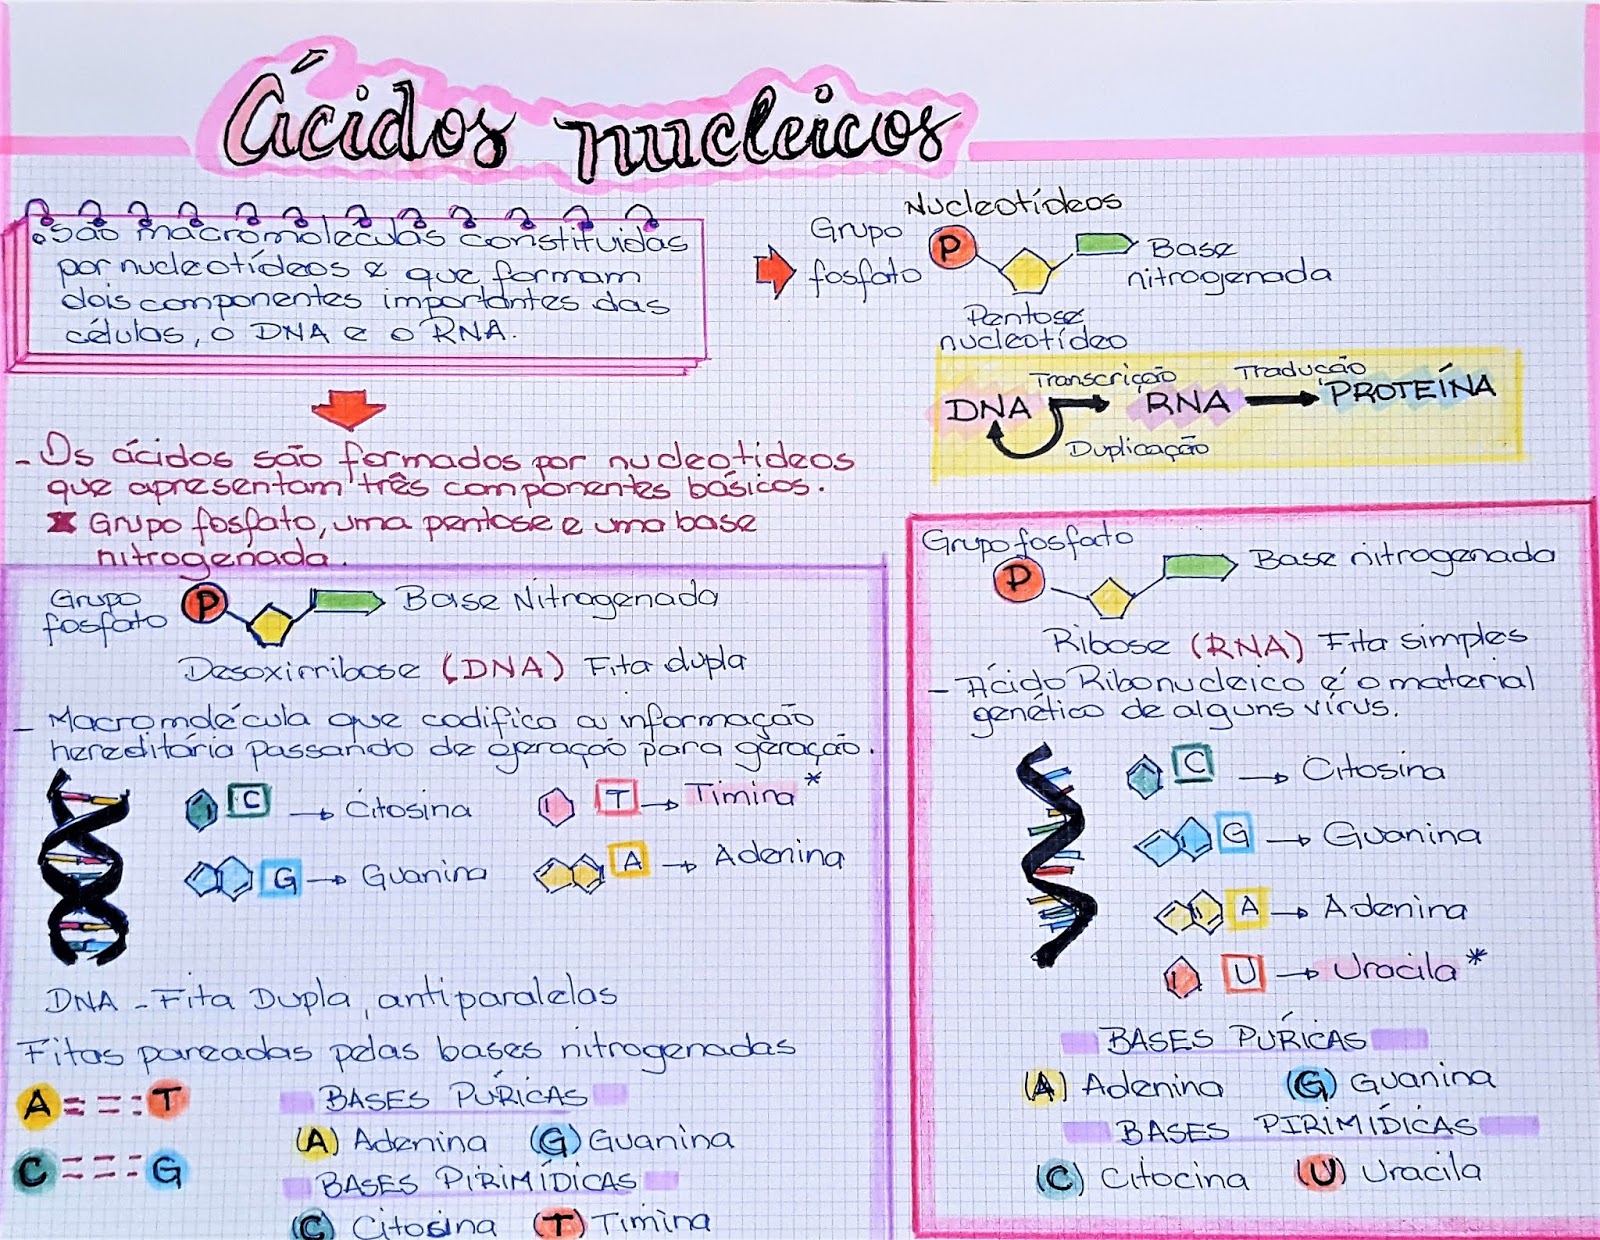 Ácidos nucleicos
• São macromoléculas constituidas
por nucleotídeos e que formam
dois componentes importantes das
células, o DNA e o RNA.
Nucleotídeos
Grupo
fosfato
P
Base
nitrogenada
Pentose
nucleotídeo
Transcrição
Tradução
DNA
RNA
PROTEÍNA
Duplicação
- Os ácidos são formados por nucleotideos
que apresentam três componentes básicos.
Grupo fosfato, uma pentose e uma base
nitrogenada.
Grupo
fosfato
P
Base Nitrogenada
Desoxirribose (DNA) Fita dupla
- Macromolécula que codifica a informação
hereditária passando de geração para geração.
C → Citosina
T → Timina*
G → Guanina
A → Adenina
DNA - Fita Dupla, antiparalelas
Fitas pareadas pelas bases nitrogenadas
A = = = T
C ≡ ≡ ≡ G
BASES PÚRICAS
(A) Adenina (G) Guanina
BASES PIRIMÍDICAS
(C) Citosina (T) Timina
Grupo fosfato
P
Base nitrogenada
Ribose (RNA) Fita simples
- Ácido Ribonucleico é o material
genético de alguns vírus.
C → Citosina
G → Guanina
A → Adenina
U → Uracila*
BASES PÚRICAS
(A) Adenina (G) Guanina
BASES PIRIMÍDICAS
(C) Citocina (U) Uracila